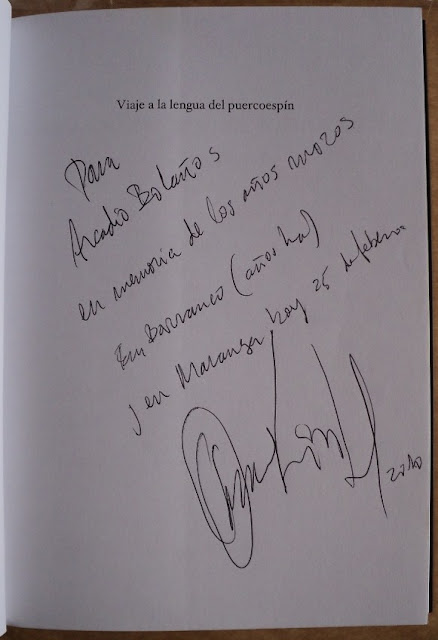 Viaje a la lengua del puercoespín
Para
Arcadio Bolaños
en memoria de los años mozos
En Barranco (años ha)
y en Maranga hoy 25 de febrero
2010